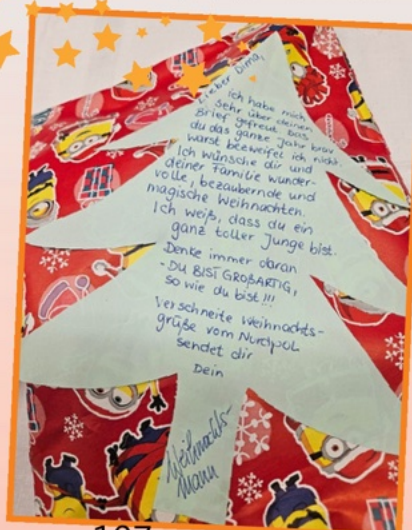 Lieber Dima,
ich habe mich
sehr über deinen
Brief gefreut. Das
du das ganze Jahr brav
warst bezweifel ich nicht.
Ich wünsche dir und
deiner Familie wunder-
volle, bezaubernde und
magische Weihnachten.
Ich weiß, dass du ein
ganz toller Junge bist.
Denke immer daran
- DU BIST GROßARTIG,
so wie du bist!!!
Verschneite Weihnachts-
grüße vom Nordpol
sendet dir
Dein
Weihnachts-
mann